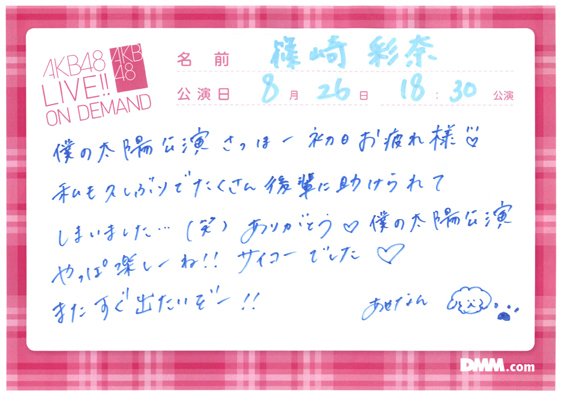 AKB48
LIVE!!
ON DEMAND
AKB
48
名前 篠崎彩奈
公演日 8月26日 18:30公演
僕の太陽公演 さっほー初日お疲れ様♡
私も久しぶりでたくさん後輩に助けられて
しまいました…(笑) ありがとう♡僕の太陽公演
やっぱ楽しーね!! サイコーでした♡
またすぐ出たいぞー!!
あせなん
DMM.com